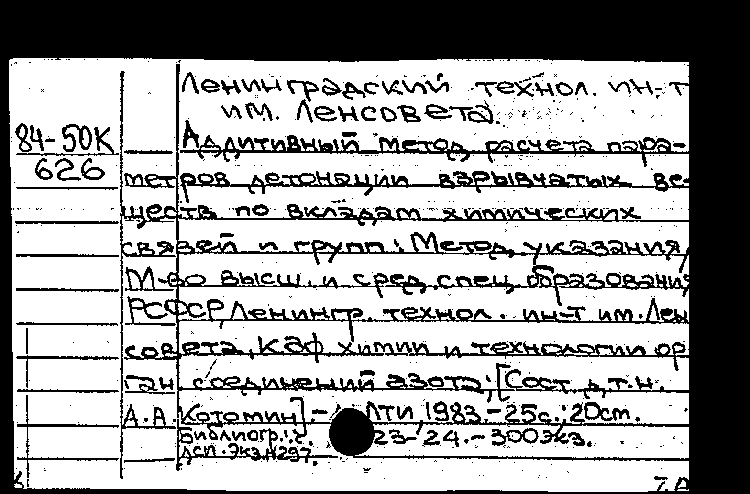 Ленинградский технол. ин-т
им. Ленсовета.
84-50К
626
Аддитивный метод расчета пара-
метров детонации взрывчатых ве-
ществ по вкладам химических
связей и групп: Метод. указания/
М-во высш. и сред. спец. образования
РСФСР, Ленингр. технол. ин-т им. Лен
совета, Каф. химии и технологии ор
ган. соединений азота; [Сост. д.т.н.
А.А. Котомин]. - ЛТИ, 1983.-25с.; 20см.
Библиогр.: с. 23-24.-300экз.
ДСП. Экз.N297.